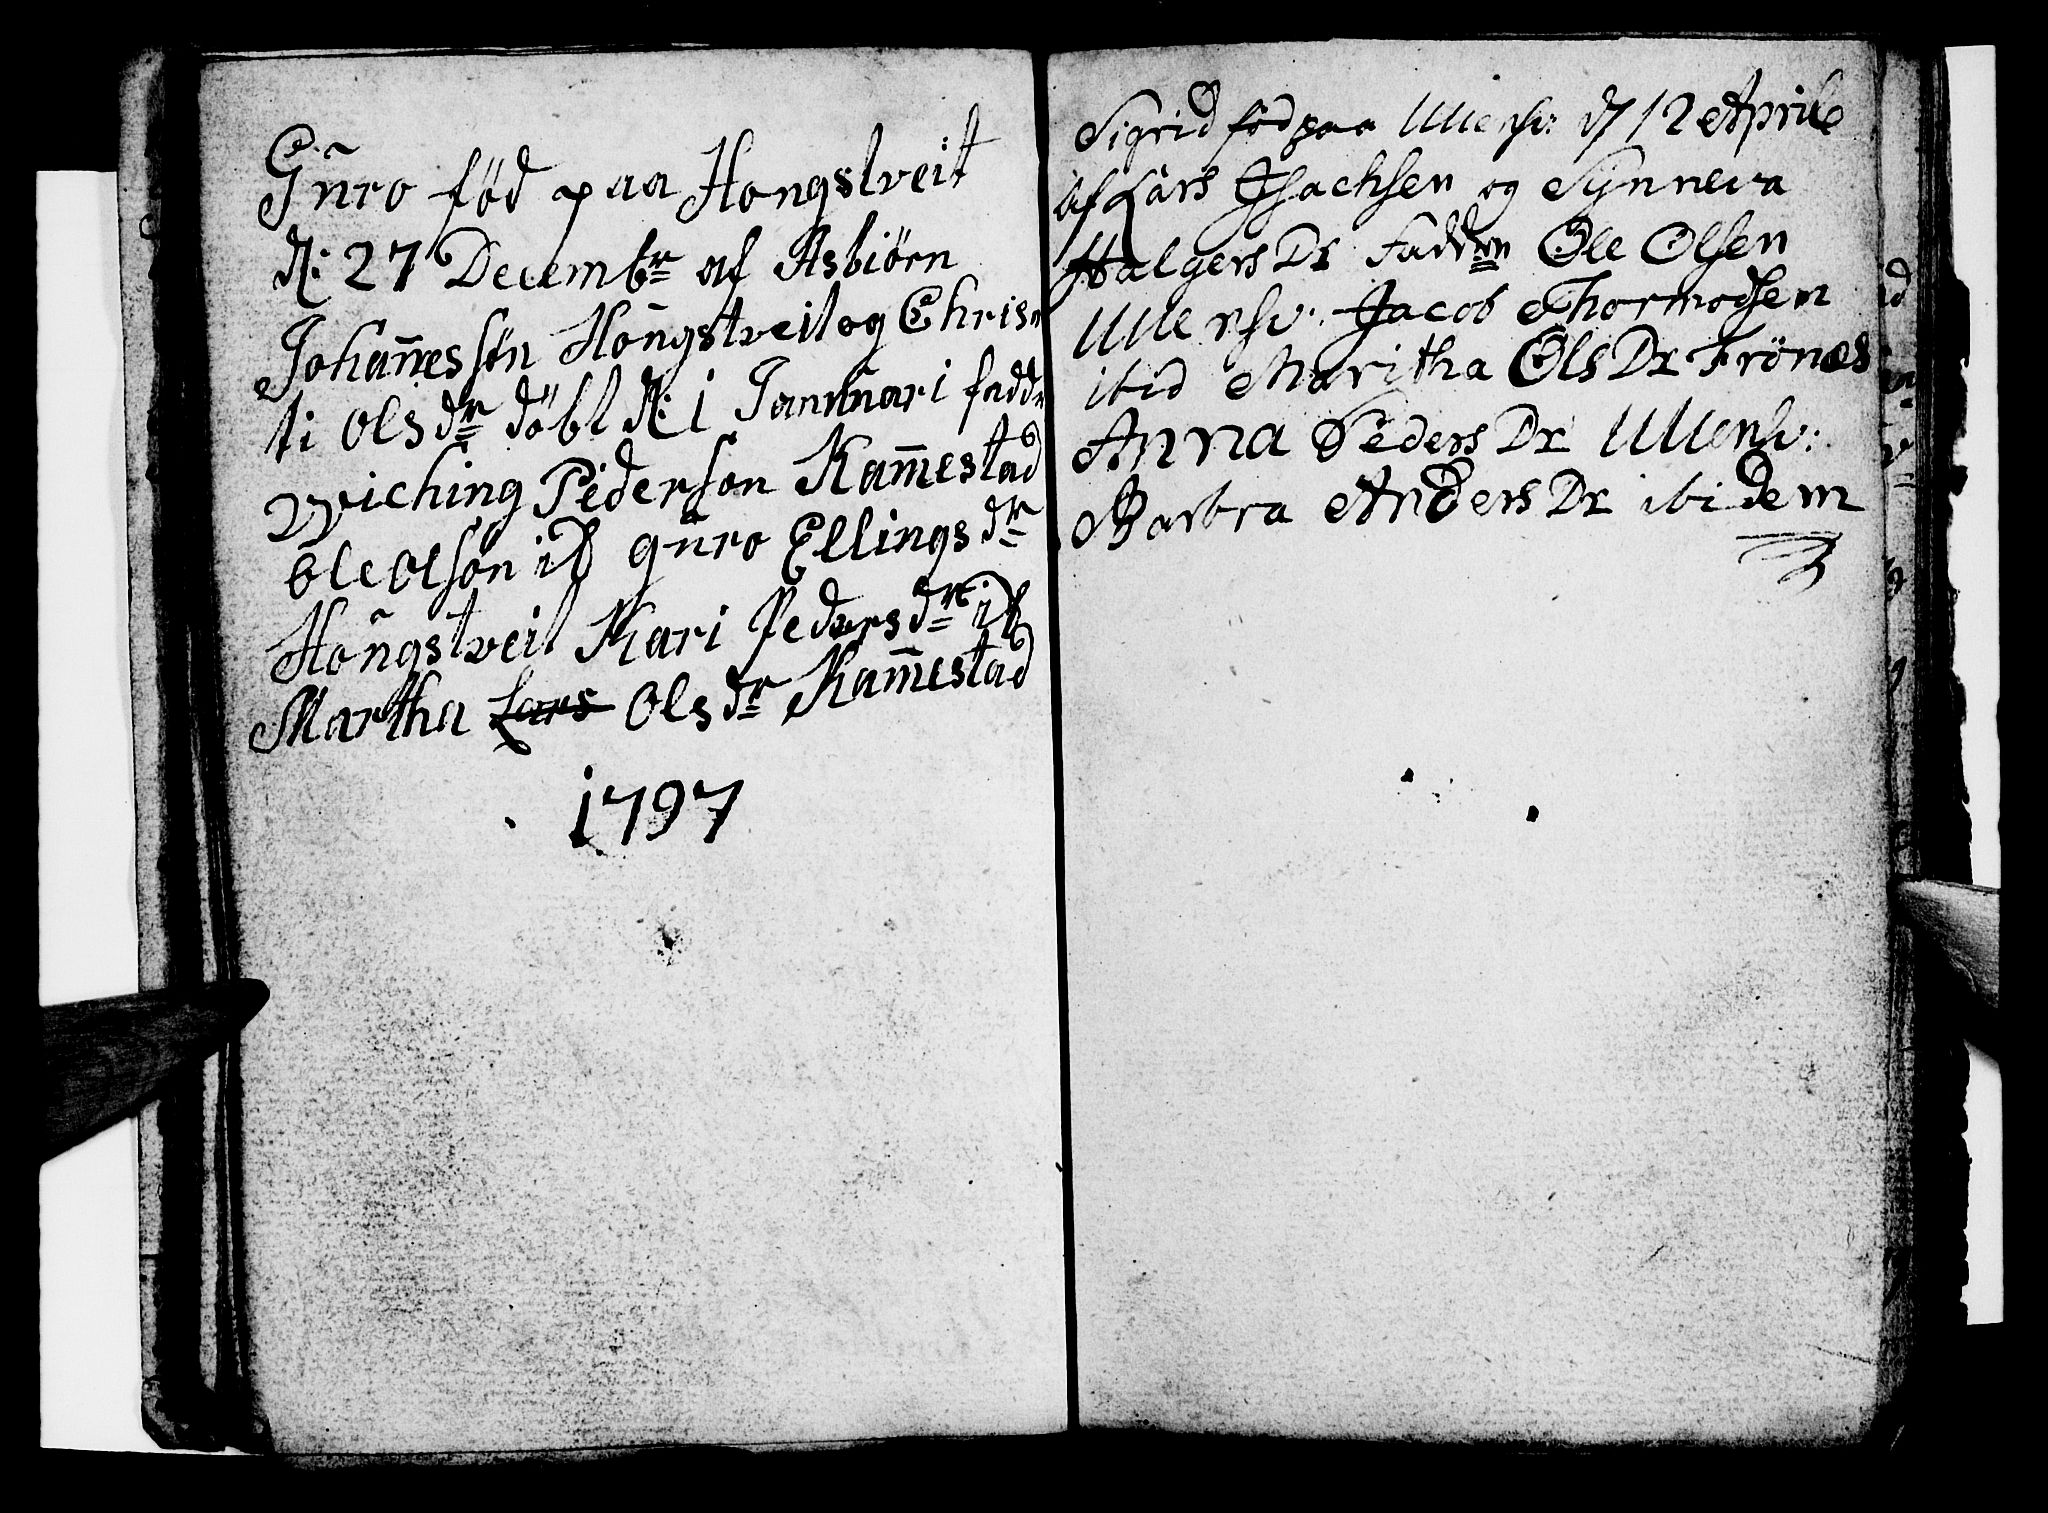 Guro fød paa Hongstveit
d: 27 Decembr af Asbiørn
Johannessøn Hongstveit og Chris
ti Olsdr døbt d: 1 Januari fadd
Wiching Pederson Kammestad
Ole Olson ib guro Ellingsdr
Hongstveit Kari Pedersdr ib
Martha Lars Olsdr Kammestad
1797
Sigrid fød paa Ullensv: d 12 Aprile
af Lars Isachsen og Synneva
Halgers Dr Faddrn Ole Olsen
Ullensv. Jacob Thormodsen
ibid Maritha Ols Dr Frönæs
Anna Peders Dr Ullensv:
Barbra Anders Dr ibidem